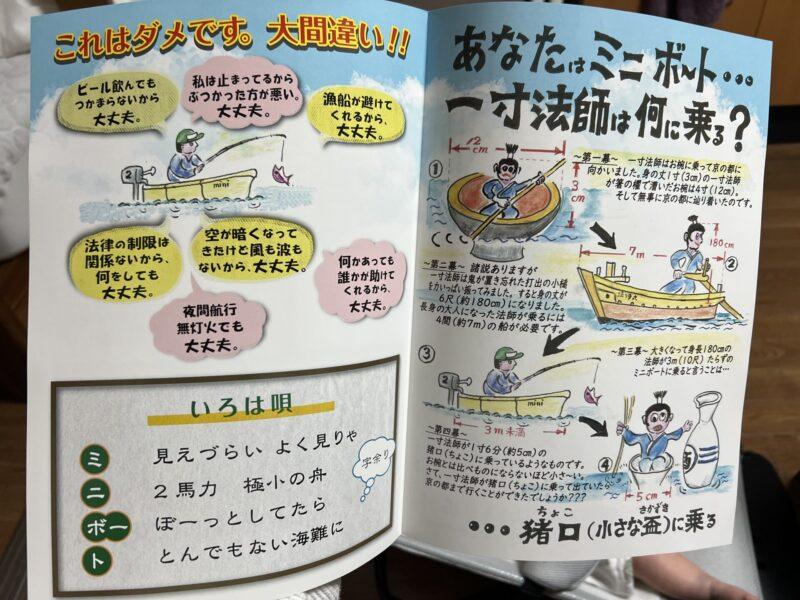 これはダメです。大間違い!!
ビール飲んでも
つかまらないから
大丈夫。
私は止まってるから
ぶつかった方が悪い。
大丈夫。
漁船が避けて
くれるから、
大丈夫。
2
mini
法律の制限は
関係ないから、
何をしても
大丈夫。
空が暗くなって
きたけど風も波も
ないから、大丈夫。
何かあっても
誰かが助けて
くれるから、
大丈夫。
夜間航行
無灯火でも
大丈夫。
いろは唄
ミニボート
見えづらい よく見りゃ
字余り
2馬力 極小の舟
ぼーっとしてたら
とんでもない海難に
あなたはミニボート・・・
一寸法師は何に乗る?
①
12
cm
3
cm
~第一幕~ 一寸法師はお椀に乗って京の都に
向かいました。身の丈1寸(3cm)の一寸法師
が箸の櫂で漕いだお椀は4寸(12cm)。
そして無事に京の都に辿り着いたのです。
7m
180cm
②
~第二幕~ 諸説ありますが
一寸法師は鬼が置き忘れた打出の小槌
をかっぱい振ってみました。すると身の丈が
6尺(約180cm)になりました。
長身の大人になった法師が乗るには
4間(約7m)の船が必要です。
③
2
mini
3m未満
~第三幕~ 大きくなって身長180cmの
法師が3m(10尺)たらずの
ミニボートに乗ると言うことは…
~第四幕~
一寸法師が1寸6分(約5cm)の
猪口(ちょこ)に乗っているようなものです。
お椀とは比べものにならないほど小さい。
さて、一寸法師が猪口(ちょこ)に乗って出ていたら
京の都まで行くことができたでしょうか???
④
5cm
酒
ちょこ
さかずき
・・・猪口(小さな盃)に乗る